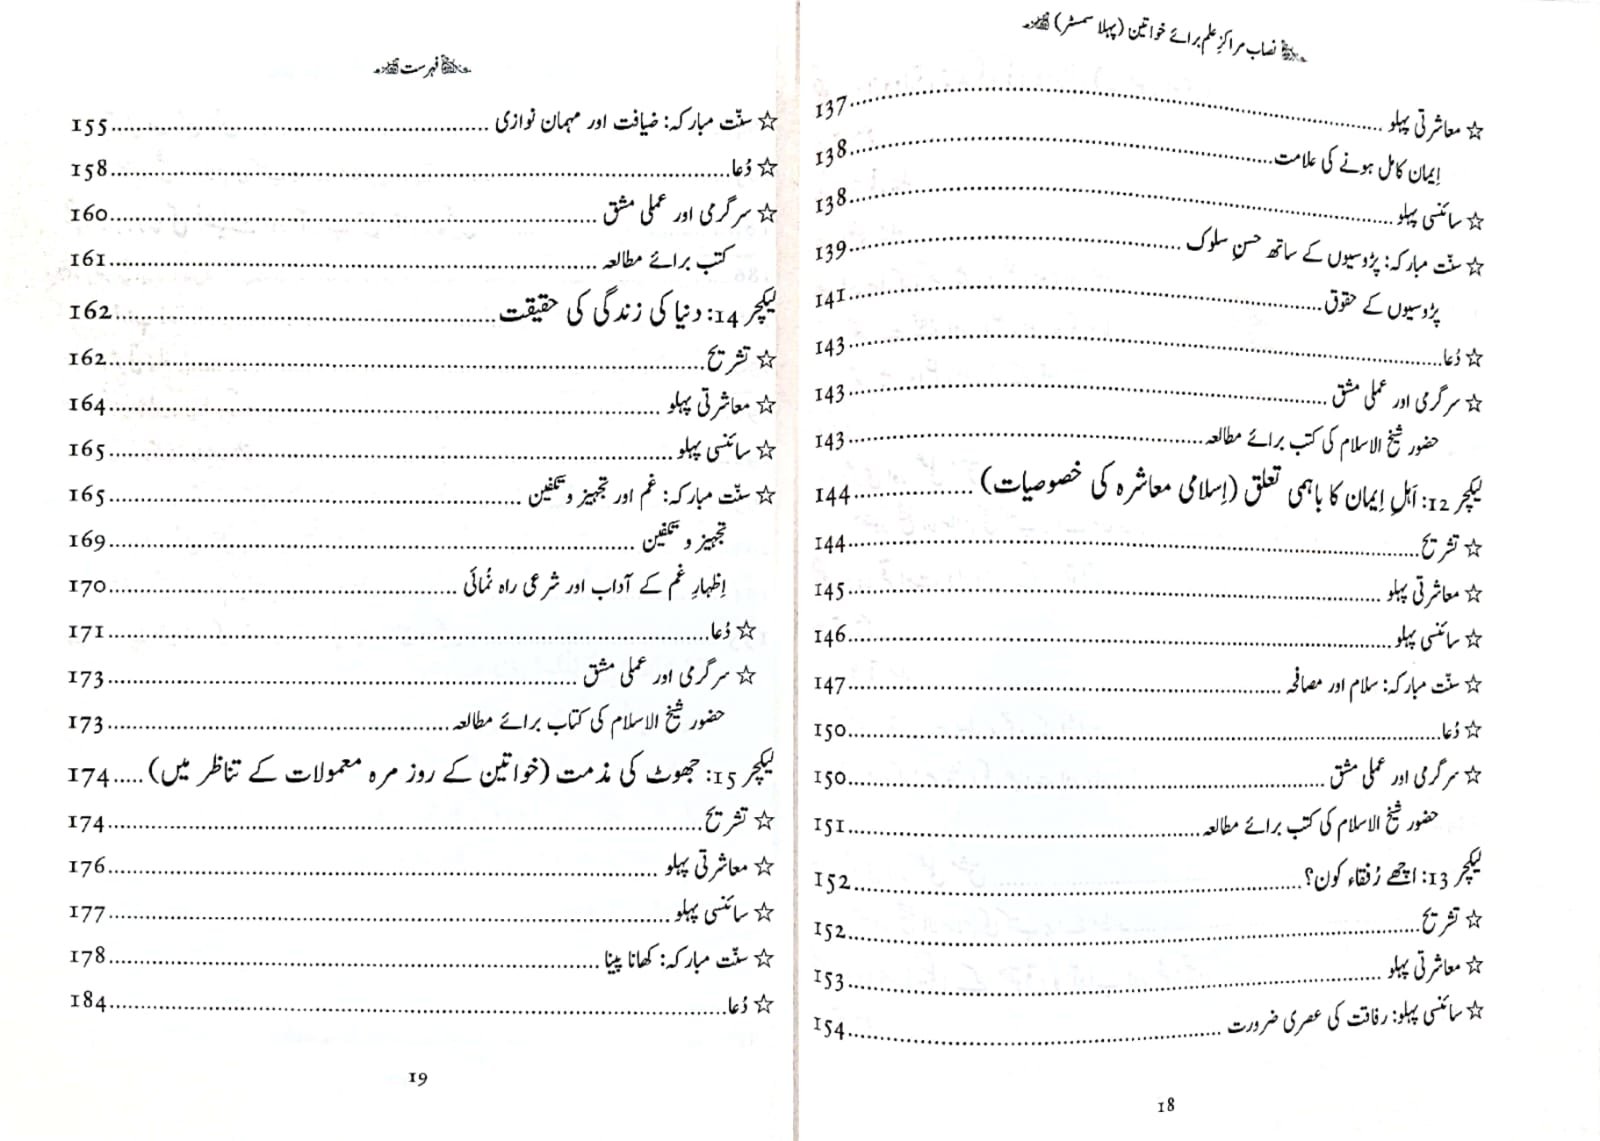 نصاب مراکزِ علم برائے خواتین (پہلا سمسٹر)
☆ معاشرتی پہلو ........ 137
اِیمان کامل ہونے کی علامت ........ 138
☆ سائنسی پہلو ........ 138
☆ سنّت مبارکہ: پڑوسیوں کے ساتھ حسنِ سلوک ........ 139
پڑوسیوں کے حقوق ........ 141
☆ دُعا ........ 143
☆ سرگرمی اور عملی مشق ........ 143
حضور شیخ الاسلام کی کتب برائے مطالعہ ........ 143
لیکچر 12: اَہلِ اِیمان کا باہمی تعلق (اِسلامی معاشرہ کی خصوصیات) ........ 144
☆ تشریح ........ 144
☆ معاشرتی پہلو ........ 145
☆ سائنسی پہلو ........ 146
☆ سنّت مبارکہ: سلام اور مصافحہ ........ 147
☆ دُعا ........ 150
☆ سرگرمی اور عملی مشق ........ 150
حضور شیخ الاسلام کی کتب برائے مطالعہ ........ 151
لیکچر 13: اچھے رُفقاء کون؟ ........ 152
☆ تشریح ........ 152
☆ معاشرتی پہلو ........ 153
☆ سائنسی پہلو: رفاقت کی عصری ضرورت ........ 154
18
فہرست
☆ سنّت مبارکہ: ضیافت اور مہمان نوازی ........ 155
☆ دُعا ........ 158
☆ سرگرمی اور عملی مشق ........ 160
کتب برائے مطالعہ ........ 161
لیکچر 14: دنیا کی زندگی کی حقیقت ........ 162
☆ تشریح ........ 162
☆ معاشرتی پہلو ........ 164
☆ سائنسی پہلو ........ 165
☆ سنّت مبارکہ: غم اور تجہیز و تکفین ........ 165
تجہیز و تکفین ........ 169
اِظہارِ غم کے آداب اور شرعی راہ نُمائی ........ 170
☆ دُعا ........ 171
☆ سرگرمی اور عملی مشق ........ 173
حضور شیخ الاسلام کی کتاب برائے مطالعہ ........ 173
لیکچر 15: جھوٹ کی مذمت (خواتین کے روز مرہ معمولات کے تناظر میں) ..... 174
☆ تشریح ........ 174
☆ معاشرتی پہلو ........ 176
☆ سائنسی پہلو ........ 177
☆ سنّت مبارکہ: کھانا پینا ........ 178
☆ دُعا ........ 184
19